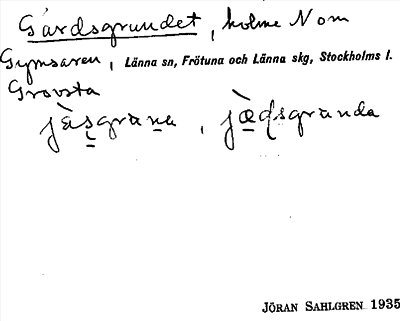 Gårdsgrundet, holme N om
Gymsaren, Länna sn, Frötuna och Länna skg, Stockholms l.
Grovsta
JÖRAN SAHLGREN 1935